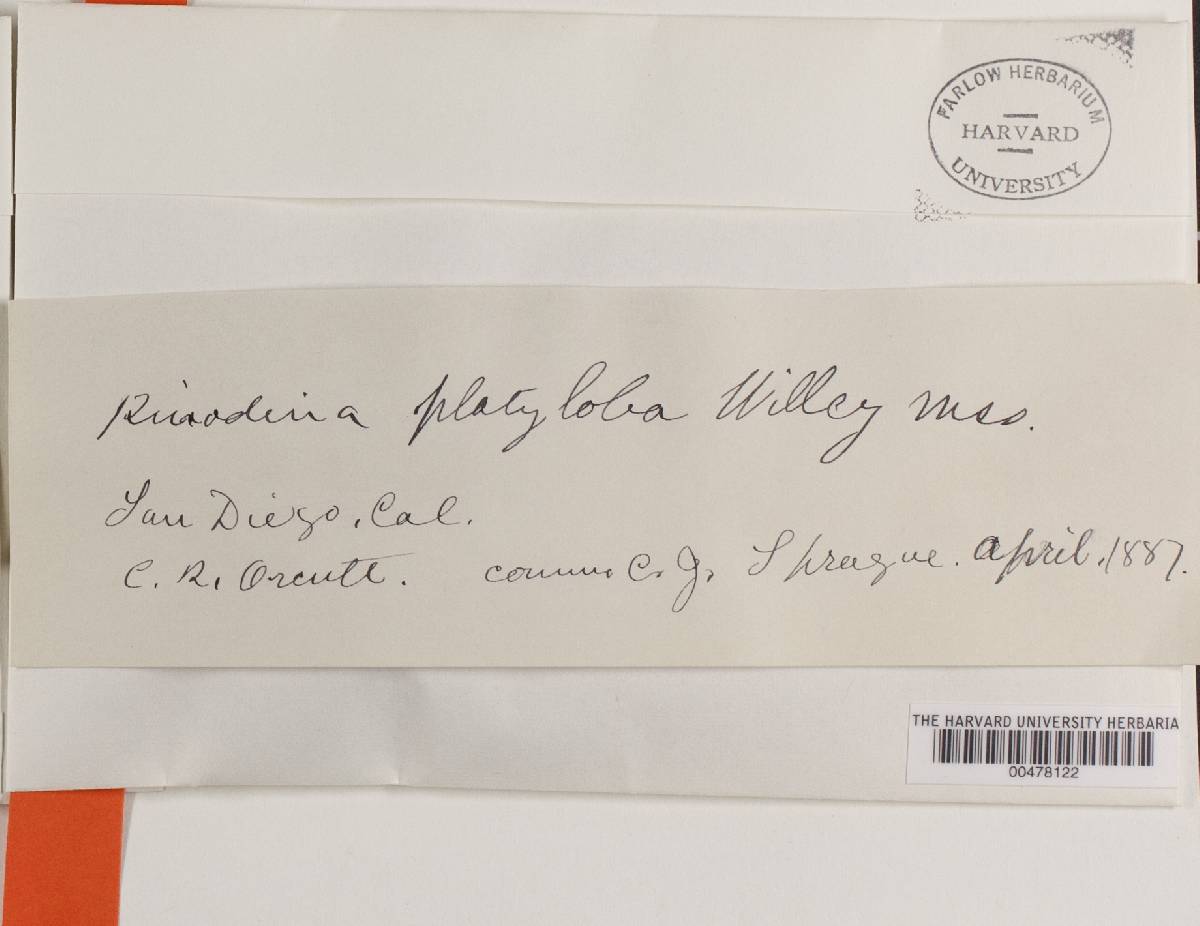 FARLOW HERBARIUM
HARVARD
UNIVERSITY
Rinodina platyloba Willey mss.
San Diego, Cal.
C. R. Orcutt. comm. C. J. Sprague. April, 1887.
THE HARVARD UNIVERSITY HERBARIA
00478122